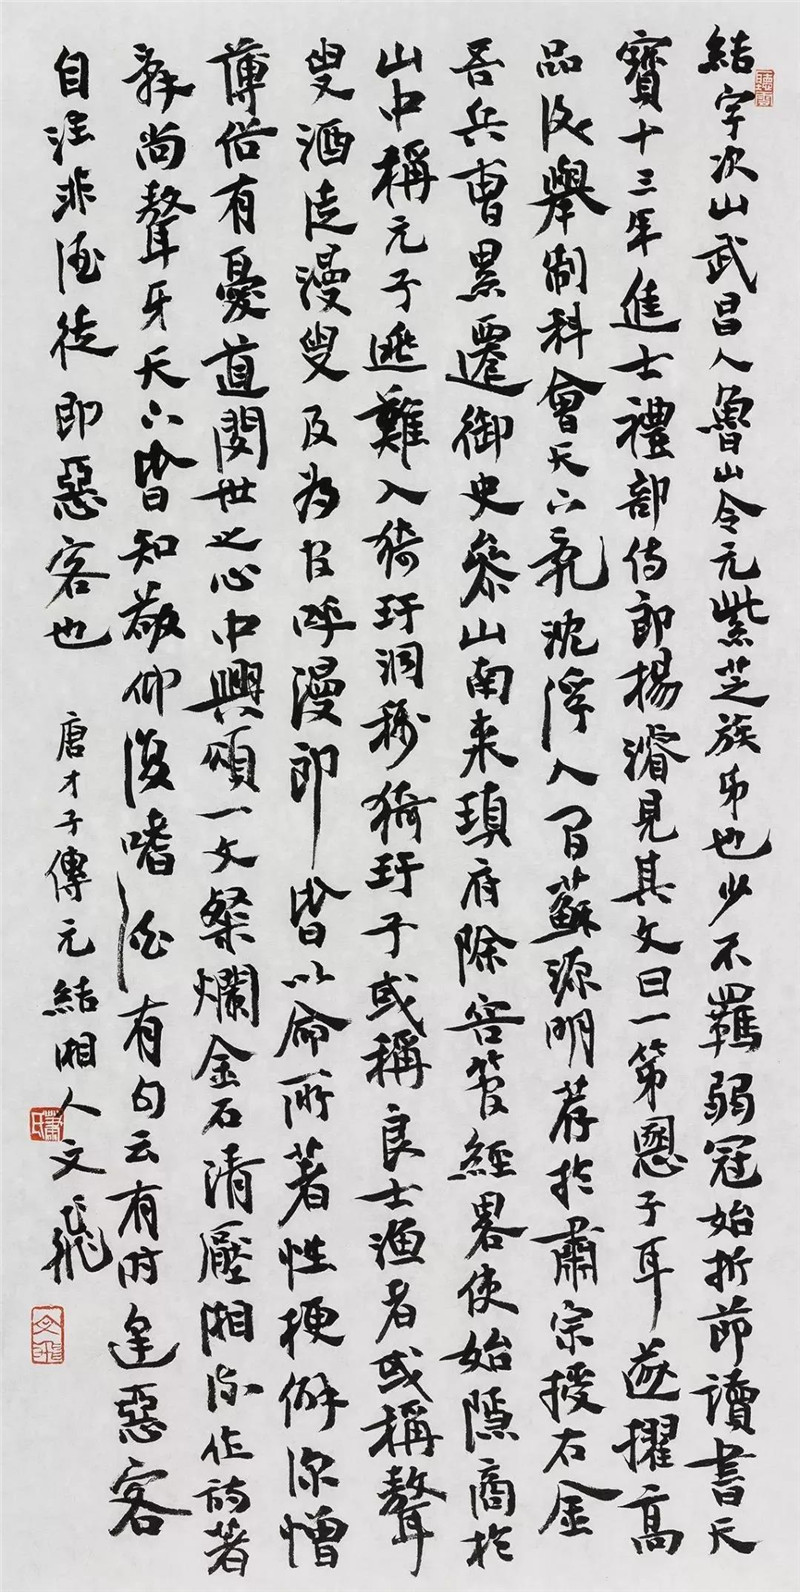 結字次山武昌人魯山令元紫芝族弟也少不羈弱冠始折節讀書天
寶十三年進士禮部侍郎楊濬見其文曰一第慁子耳遂擢高
品後舉制科會天下亂沈浮人間蘇源明荐於肅宗授右金
吾兵曹累遷御史參山南来瑱府除容管經畧使始隱商於
山中稱元子逃難入猗玗洞稱猗玗子或稱良士漁者或稱聱
叟酒徒漫叟及為官呼漫郎皆以命所著性梗僻深憎
薄俗有憂道閔世之心中興頌一文粲爛金石清壓湘流作詩著
辞尚聱牙天下皆知敬仰復嗜酒有句云有時逢惡客
自注非酒徒即惡客也
唐才子傳元結湘人文飛
蕭氏
文飛